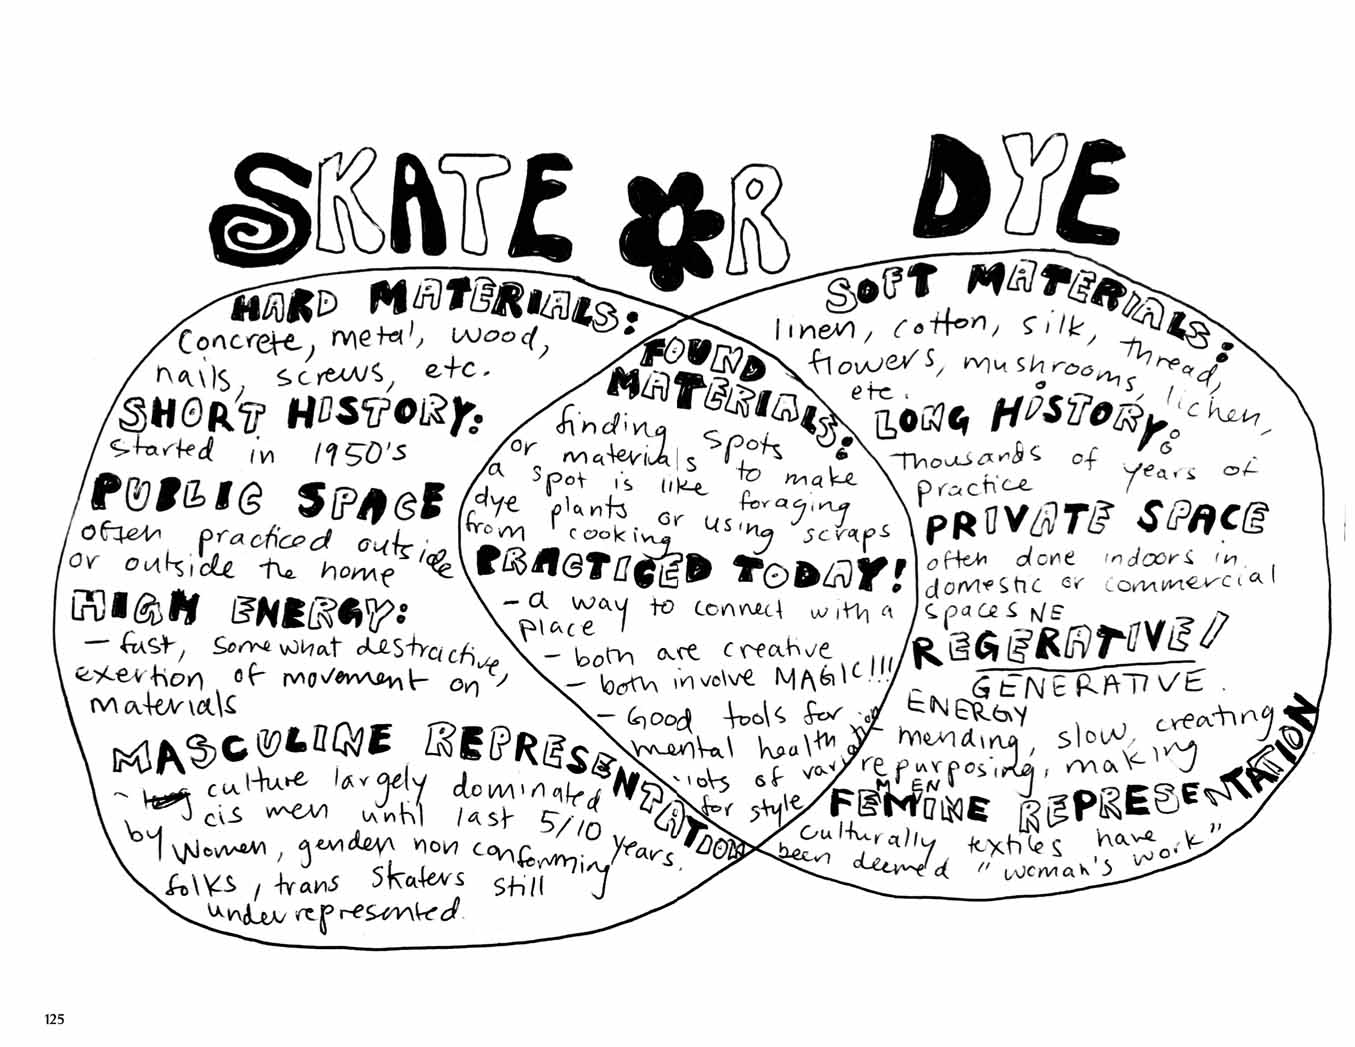 SKATE OR DYE
HARD MATERIALS:
Concrete, metal, wood,
nails, screws, etc.
SHORT HISTORY:
started in 1950's
PUBLIC SPACE
often practiced outside
or outside the home
HIGH ENERGY:
– fast, somewhat destractive,
exertion of movement on
materials
MASCULINE REPRESENTATION
- culture largely dominated
by cis men until last 5/10 years.
Women, gender non conforming
folks, trans skaters still
underrepresented.
FOUND
MATERIALS:
finding spots
or materials to make
a spot is like foraging
dye plants or using scraps
from cooking
PRACTICED TODAY!
– a way to connect with a
place
– both are creative
– both involve MAGIC!!!
– Good tools for
mental health
- lots of variation
for style
SOFT MATERIALS:
linen, cotton, silk, thread,
flowers, mushrooms, lichen,
etc.
LONG HISTORY:
Thousands of years of
practice
PRIVATE SPACE
often done indoors in
domestic or commercial
spaces
NE
REGERATIVE/
GENERATIVE
ENERGY
- mending, slow, creating
repurposing, making
MEN
FEMININE REPRESENTATION
Culturally textiles have
been deemed "woman's work"
125